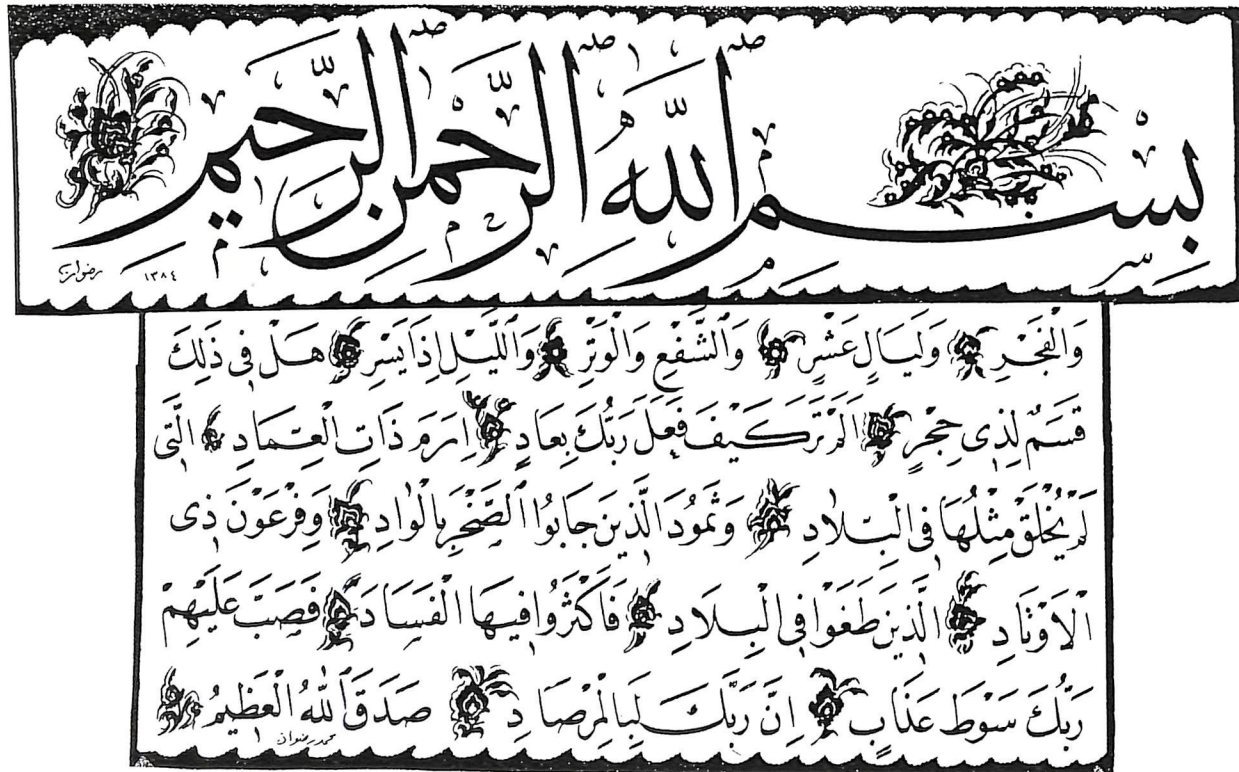 بِسْمِ اللّٰهِ الرَّحْمٰنِ الرَّحِيمِ
رضوان ١٣٨٤
وَالْفَجْرِ وَلَيَالٍ عَشْرٍ وَٱلشَّفْعِ وَالْوَتْرِ وَٱللَّيْلِ اِذَا يَسْرِ هَلْ فِى ذٰلِكَ
قَسَمٌ لِذِى حِجْرٍ اَلَمْ تَرَ كَيْفَ فَعَلَ رَبُّكَ بِعَادٍ اِرَمَ ذَاتِ الْعِمَادِ الَّتِى
لَمْ يُخْلَقْ مِثْلُهَا فِى الْبِلَادِ وَثَمُودَ الَّذِينَ جَابُوا ٱلصَّخْرَ بِالْوَادِ وَفِرْعَوْنَ ذِى
الْاَوْتَادِ الَّذِينَ طَغَوْا فِى الْبِلَادِ فَاَكْثَرُوا فِيهَا الْفَسَادَ فَصَبَّ عَلَيْهِمْ
رَبُّكَ سَوْطَ عَذَابٍ اِنَّ رَبَّكَ لَبِالْمِرْصَادِ صَدَقَ ٱللّٰهُ الْعَظِيمُ
محمد رضوان